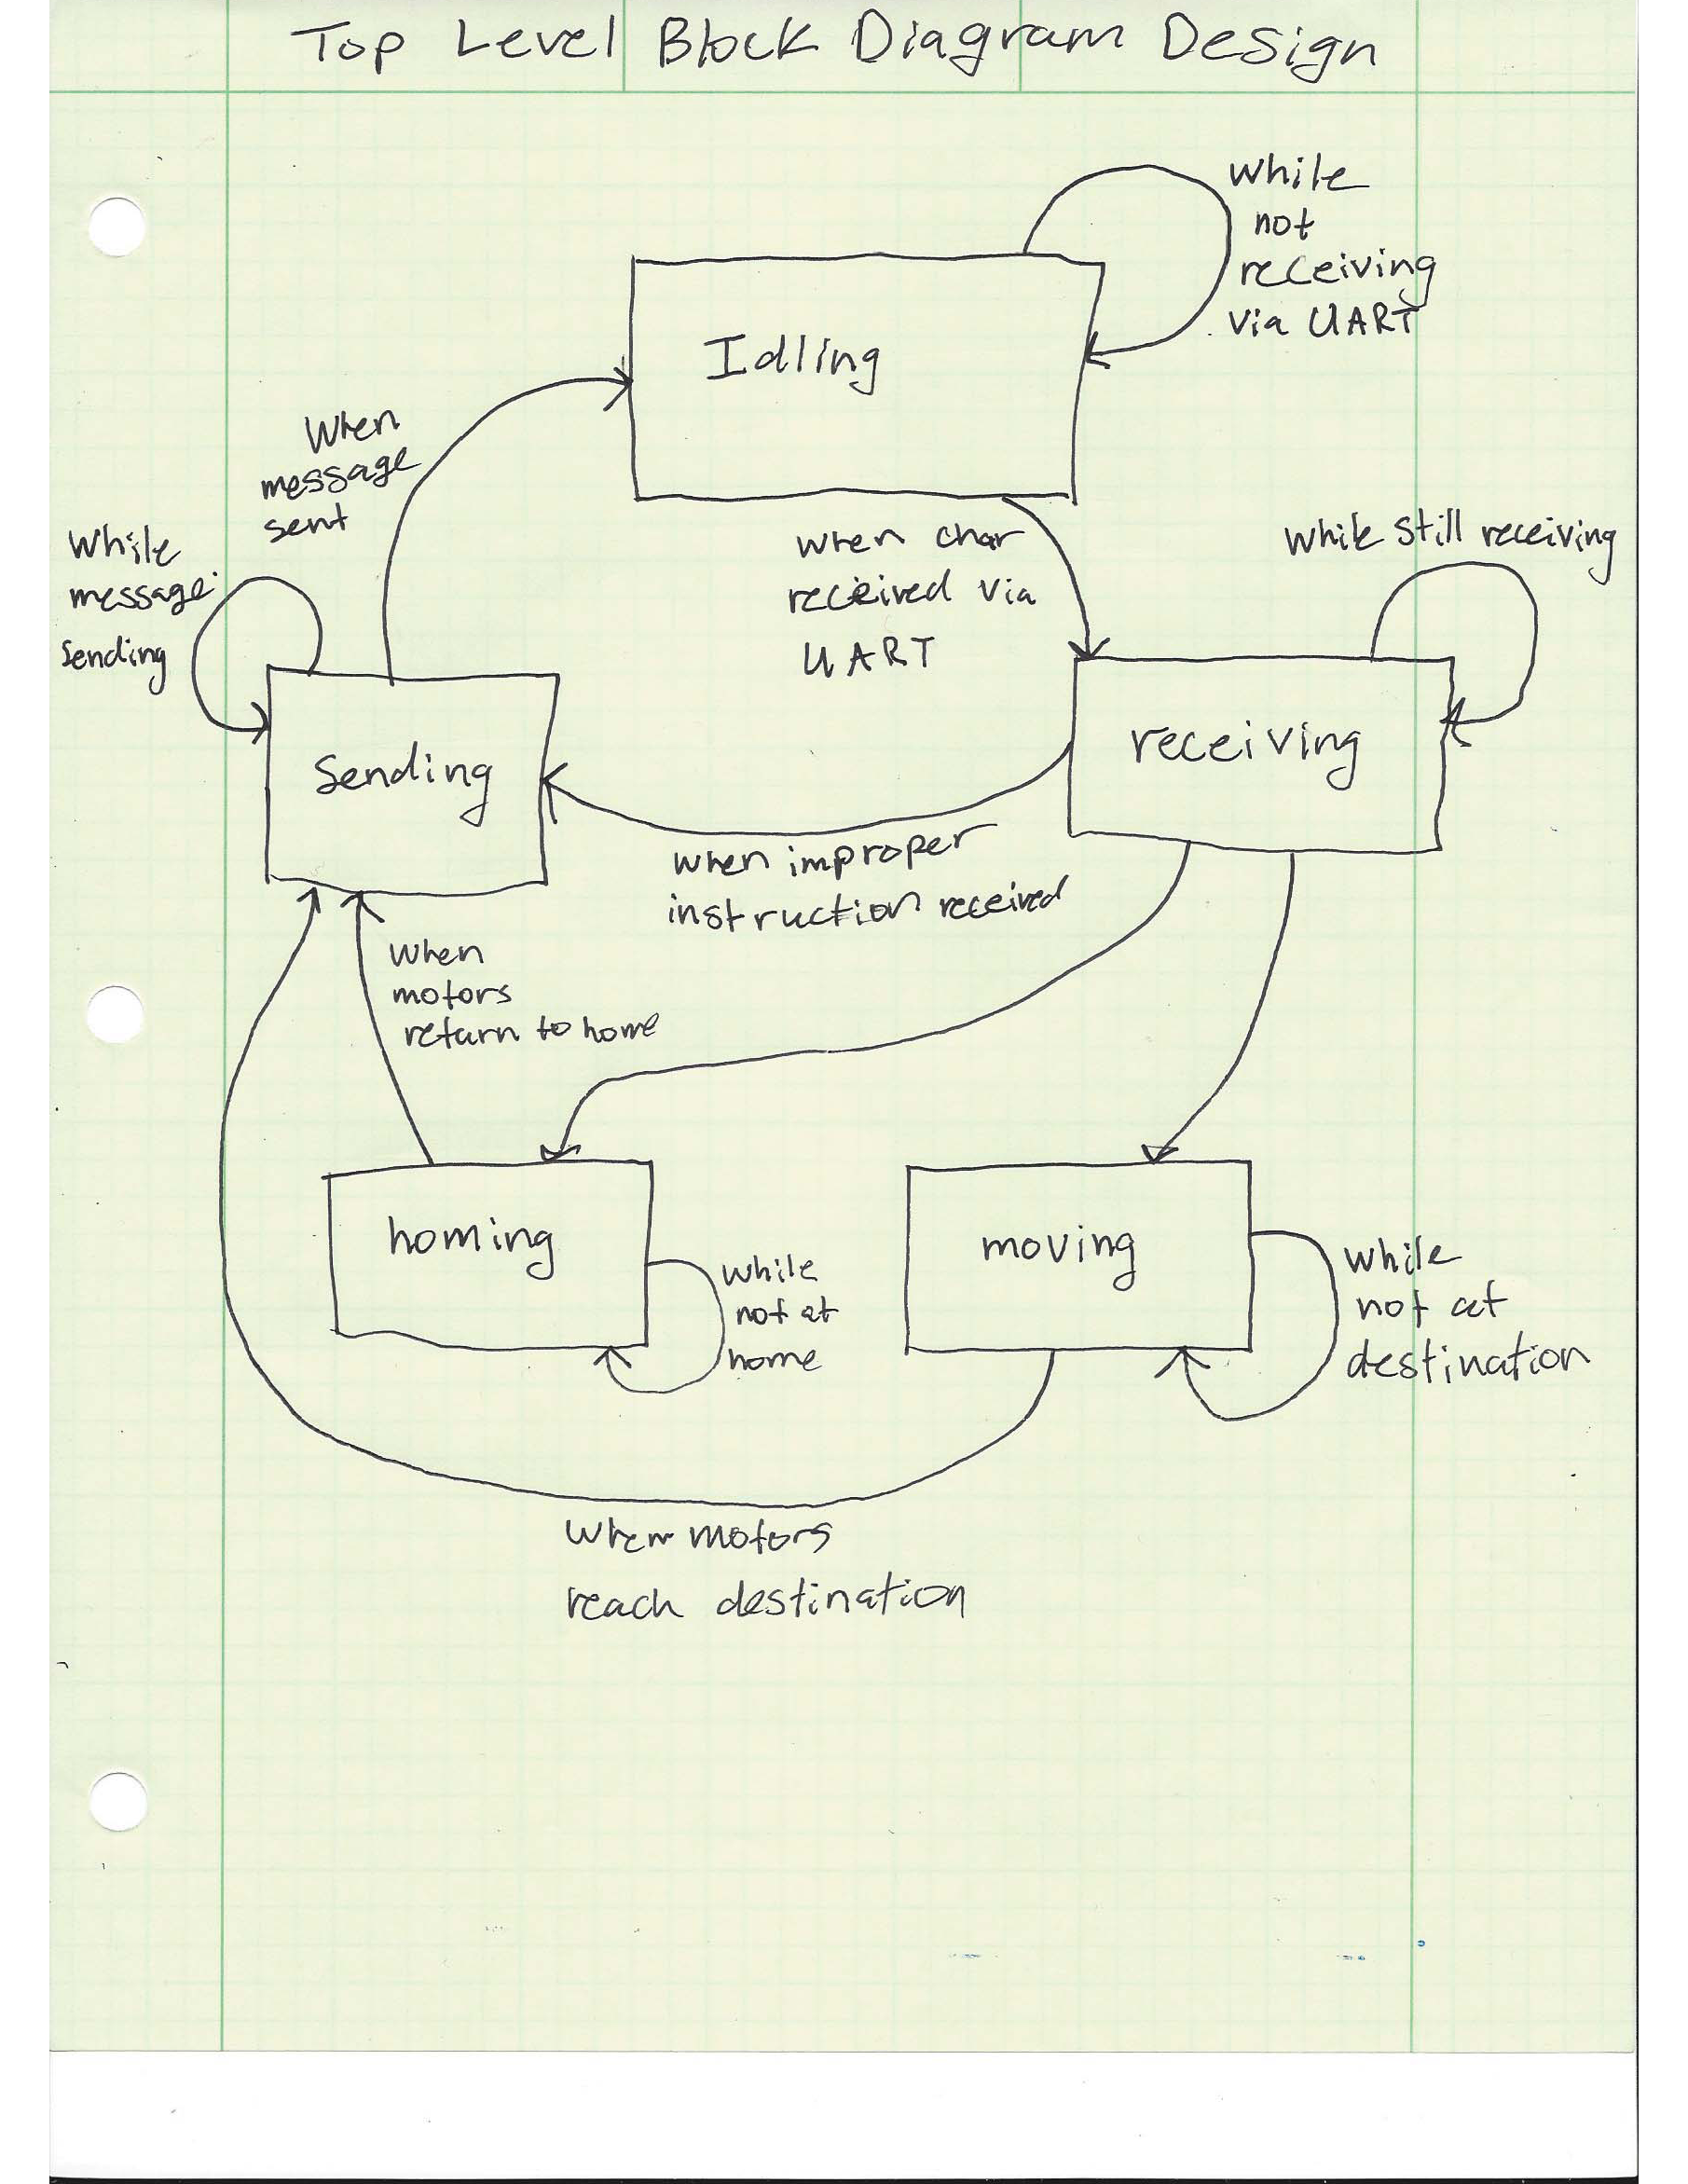 Top Level Block Diagram Design
while
not
receiving
via UART
Idling
When
message
sent
While
message
sending
when char
received via
UART
while still receiving
Sending
receiving
when improper
instruction received
when
motors
return to home
homing
while
not at
home
moving
while
not at
destination
when motors
reach destination